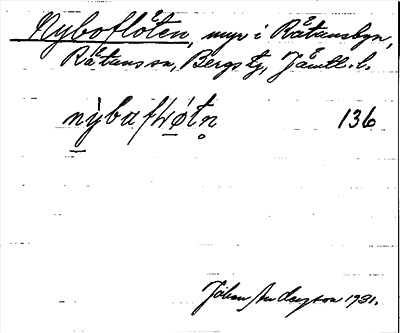 Nyboflöten, myr i Råtansbyn,
Råtans sn, Bergs tg, Jämtl. l.
nỳbafɫǿtn̥ 136
Johan Andersson 1931.